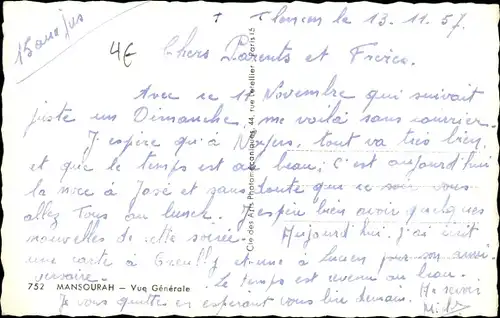 le 13.11.57
4€
Chers Parents et Frères.
Avec ce 11 Novembre qui suivait
juste un Dimanche, me voilà sans courrier.
J'espère qu'à tout va très bien,
et que le temps est au beau; C'est aujourd'hui
la noce à José et sans doute que ce soir vous
allez Tous au lunch. J'espère bien avoir quelques
nouvelles de cette soirée. Aujourd'hui j'ai écrit
une carte à et une à Lucien pour son anni-
versaire. Le temps est revenu au beau.
752 MANSOURAH — Vue Générale
Je vous quitte en espérant vous lire demain. Au revoir
Cie des Arts Photomécaniques, 44, rue Letellier - Paris 15